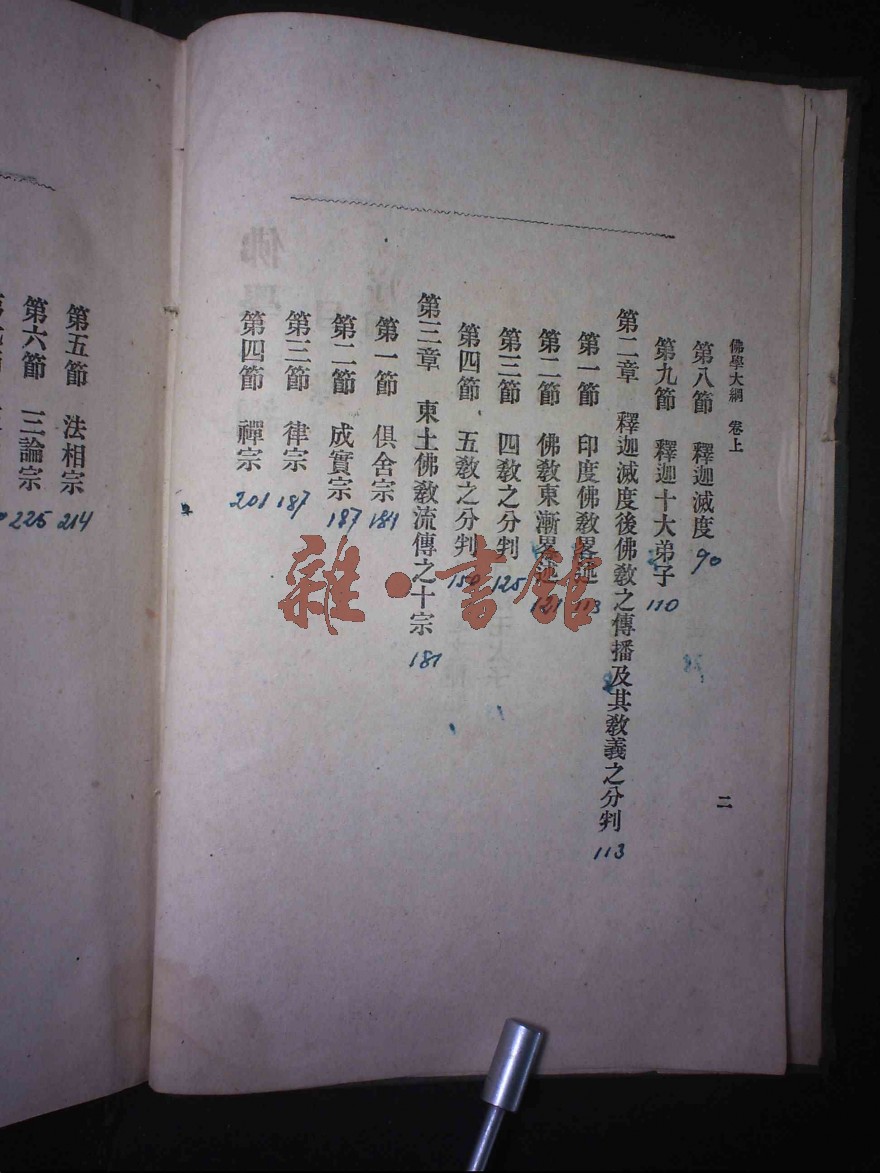 佛學大綱 卷上
第八節 釋迦滅度 90
第九節 釋迦十大弟子 110
第二章 釋迦滅度後佛敎之傳播及其敎義之分判 113
第一節 印度佛敎畧述 113
第二節 佛敎東漸畧述 121
第三節 四敎之分判 125
第四節 五敎之分判 150
第三章 東土佛敎流傳之十宗 181
第一節 俱舍宗 181
第二節 成實宗 187
第三節 律宗 187
第四節 禪宗 201
二
第五節 法相宗 214
第六節 三論宗 225
雜·書館